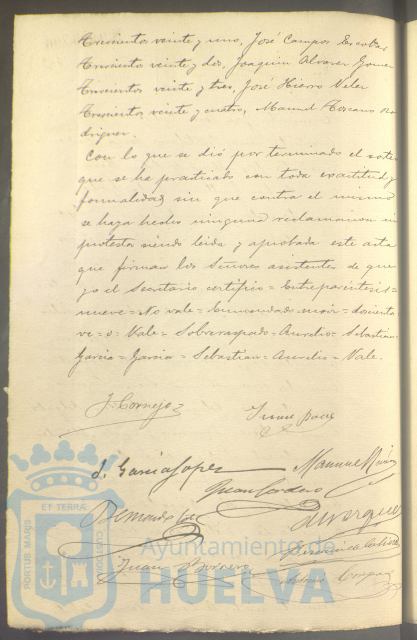 Trescientos veinte y uno, José Campos Escobar
Trescientos veinte y dos, Joaquin Alvarez Gomez
Trescientos veinte y tres, José Hierro Velez
Trescientos veinte y cuatro, Manuel Toscano Ro
driguez.
Con lo que se dió por terminado el sorteo
que se ha practicado con toda exactitud y
formalidad, sin que contra el mismo
se haya hecho ninguna reclamacion ni
protesta siendo leida y aprobada este acta
que firman los Señores asistentes de que
yo el Secretario certifico = Entreparentesis =
nueve = No vale = Enmendado = = doscienta
ve = o = Vale = Sobreraspado = Aurelio = Sebastian
Garcia = Garcia = Sebastian = Aurelio = Vale.
J. Cornejo
J. Garcia Lopez
Manuel
Juan Cordero
Bernardo
Juan Borrero
Antonio
PORTUS MARIS
ET TERRÆ
CUSTODIA
Ayuntamiento de
HUELVA